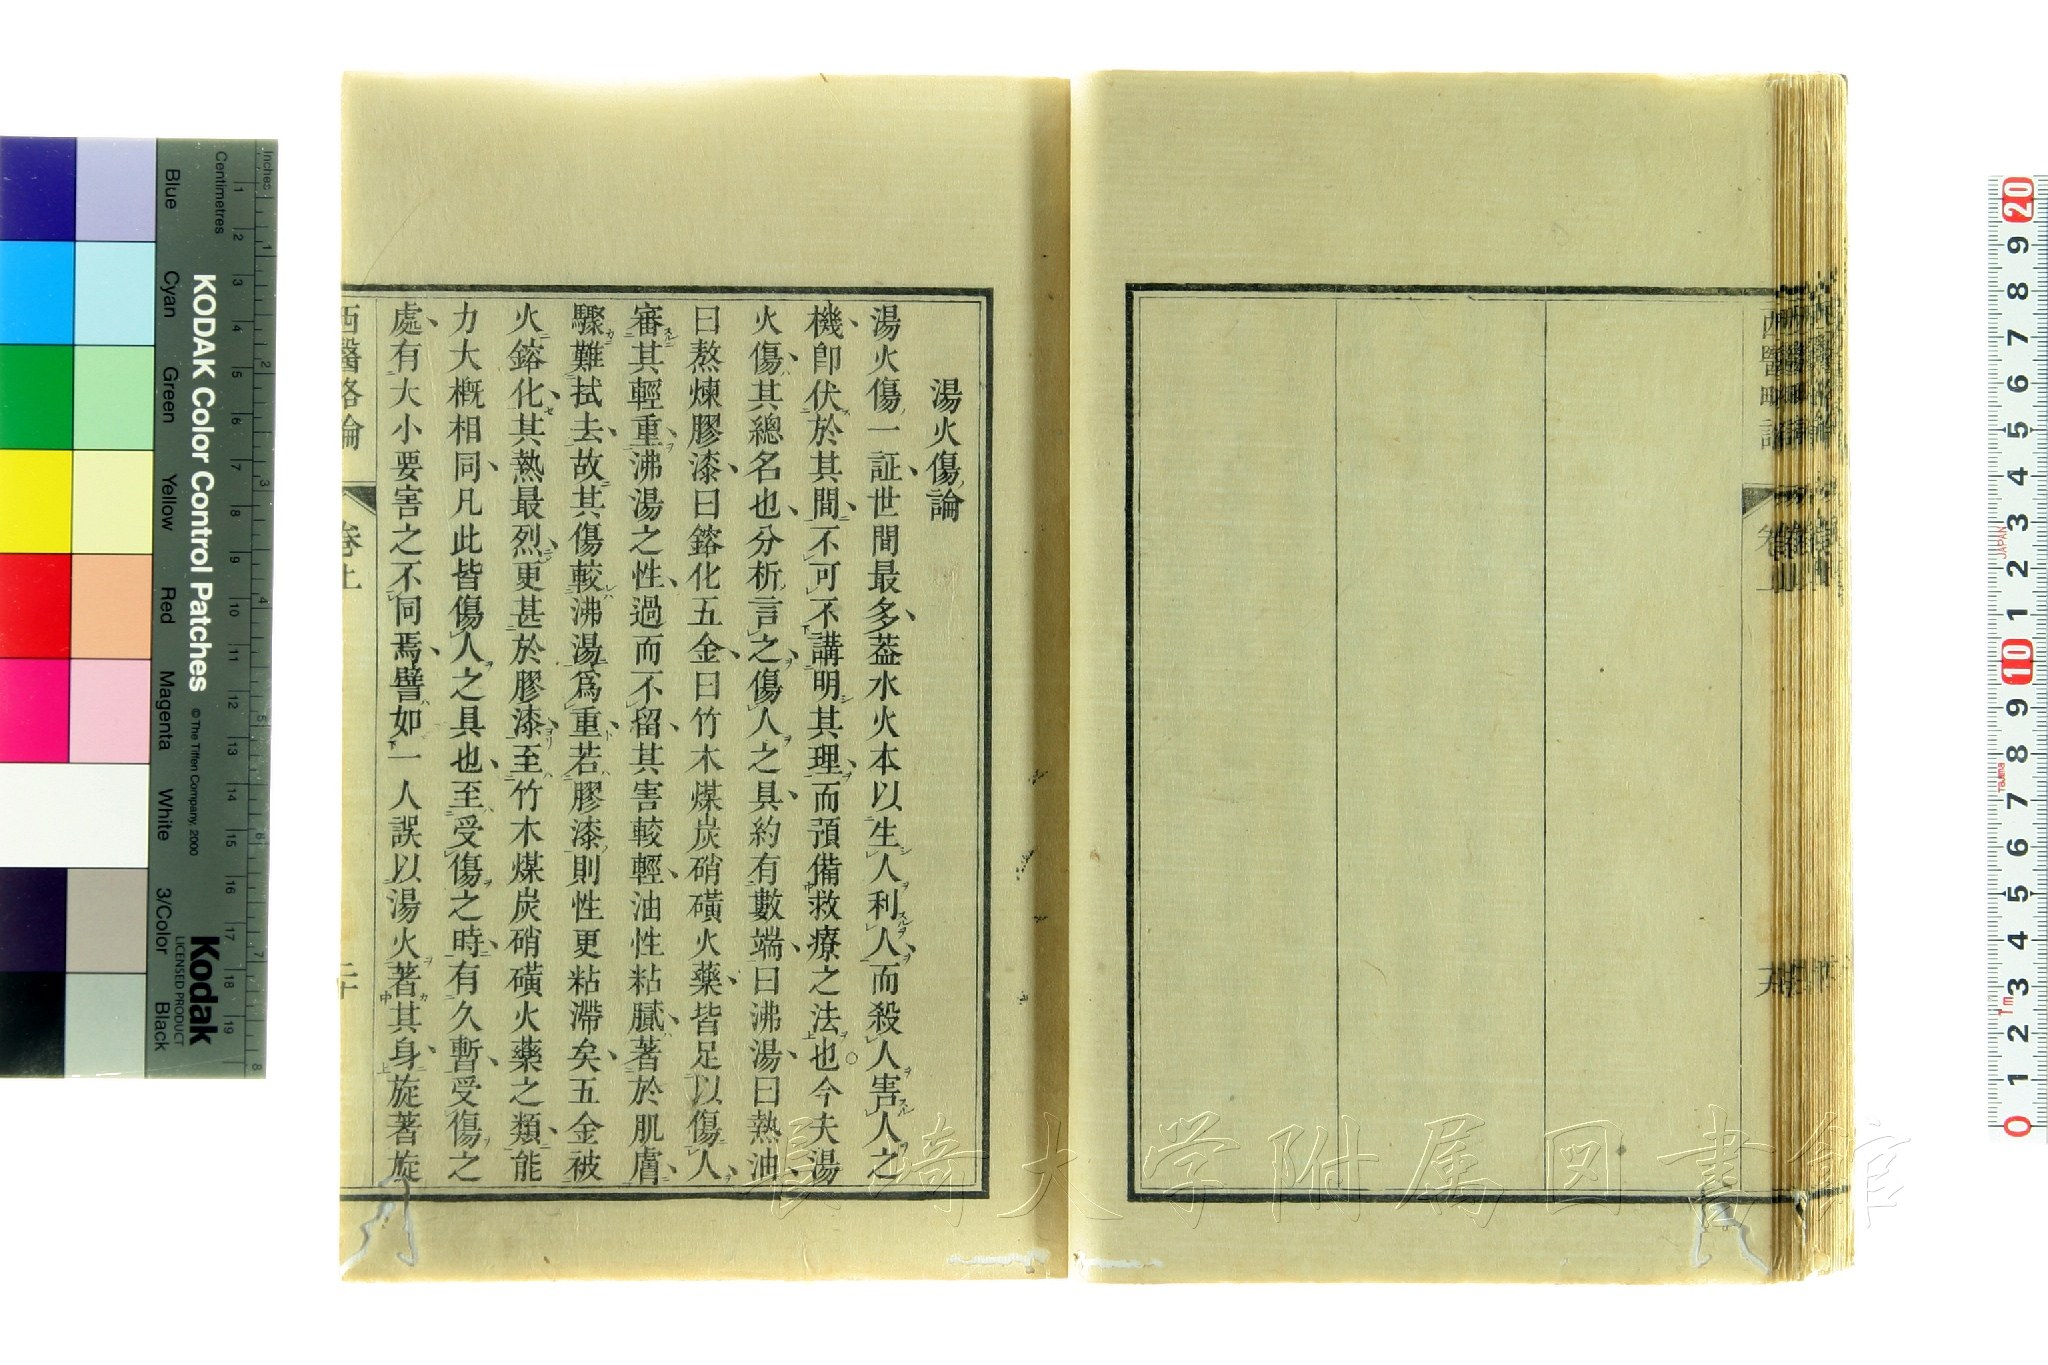 湯火傷論
湯火傷一証世間最多葢水火本以生人利人而殺人害人之
機卽伏於其間不可不講明其理而預備救療之法也○今夫湯
火傷其總名也分析言之傷人之具約有數端曰沸湯曰熱油
曰熬煉膠漆曰鎔化五金曰竹木煤炭硝磺火藥皆足以傷人
審其輕重沸湯之性過而不留其害較輕油性粘膩著於肌膚
驟難拭去故其傷較沸湯爲重若膠漆則性更粘滯矣五金被
火鎔化其熱最烈更甚於膠漆至竹木煤炭硝磺火藥之類能
力大槪相同凡此皆傷人之具也至受傷之時有久暫受傷之
處有大小要害之不同焉譬如一人誤以湯火著其身旋著旋
西醫略論
卷上
二十
西醫略論
卷上
長崎大学附属図書館
KODAK Color Control Patches
© The Tiffen Company, 2000
Kodak
LICENSED PRODUCT
Blue
Cyan
Green
Yellow
Red
Magenta
White
3/Color
Black
Inches
1
2
3
4
5
6
7
8
Centimetres
1
2
3
4
5
6
7
8
9
10
11
12
13
14
15
16
17
18
19
20
9
8
7
6
5
4
3
2
1
10
9
8
7
6
5
4
3
2
1
0